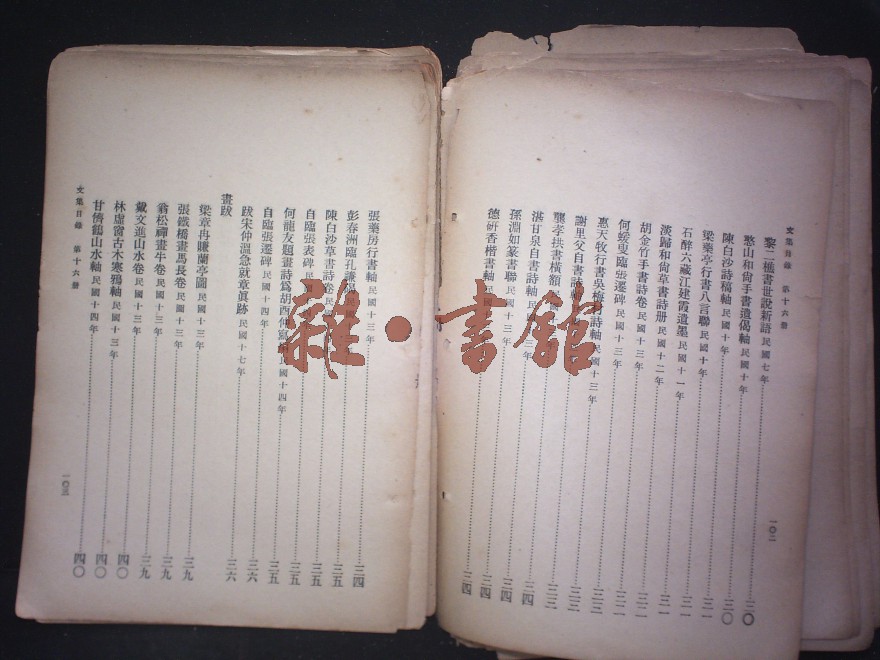 文集目錄 第十六册
一〇二
黎二樵書世說新語民國七年 三〇
憨山和尙手書遺偈軸民國十年 三〇
陳白沙詩稿軸民國十年 三〇
梁藥亭行書八言聯民國十年 三一
石醉六藏江建霞遺墨民國十一年 三一
澹歸和尙草書詩册民國十二年 三一
胡金竹手書詩卷民國十三年 三二
何蝯叟臨張遷碑民國十三年
惠天牧行書吳梅村詩軸民國十三年
謝里父自書詩軸
龔孝拱書橫額
湛甘泉自書詩軸民國 三四
孫淵如篆書聯民國十三年 三四
德硏香楷書軸民國 三四
張藥房行書軸民國十三年 三四
彭春洲臨孔 三五
陳白沙草書詩卷民國 三五
自臨張表碑民國 三五
何龍友題畫詩爲胡酉仲寫 民國十四年 三五
自臨張遷碑民國十四年 三五
跋宋仲溫急就章眞跡民國十七年 三六
畫跋 三六
梁章冉賺蘭亭圖民國十三年 三九
張鐵橋畫馬長卷民國十三年 三九
翁松禪畫牛卷民國十三年 三九
戴文進山水卷民國十三年 三九
林虛窗古木寒鴉軸民國十三年 四〇
甘儕鶴山水軸民國十四年 四〇
文集目錄 第十六册
一〇三
雜·書館